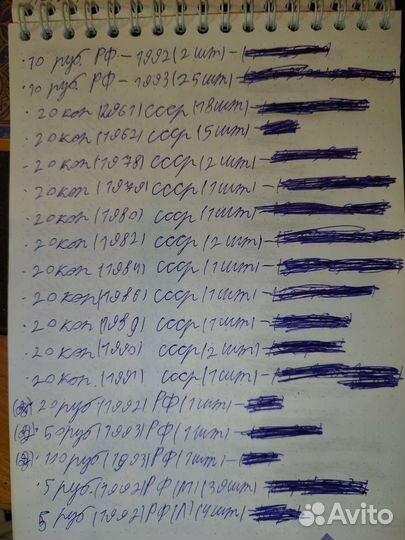 · 10 руб. РФ – 1992 (2 шт) –
· 10 руб РФ – 1993 (25 шт) –
· 20 коп (1961) СССР (18 шт) –
· 20 коп (1962) СССР (5 шт) –
· 20 коп (1978) СССР (2 шт) –
· 20 коп (1979) СССР (1 шт) –
· 20 коп (1980) СССР (1 шт) –
· 20 коп (1982) СССР (2 шт) –
· 20 коп (1984) СССР (1 шт) –
· 20 коп (1986) СССР (1 шт) –
· 20 коп (1989) СССР (1 шт) –
· 20 коп (1990) СССР (2 шт) –
· 20 коп. (1991) СССР (1 шт) –
· 20 руб (1992) РФ (1 шт) –
· 50 руб (1993) РФ (1 шт) –
· 100 руб (1993) РФ (1 шт) –
· 5 руб. (1992) РФ (М) (38 шт) –
5 руб (1992) РФ (Л) (4 шт) –
Avito